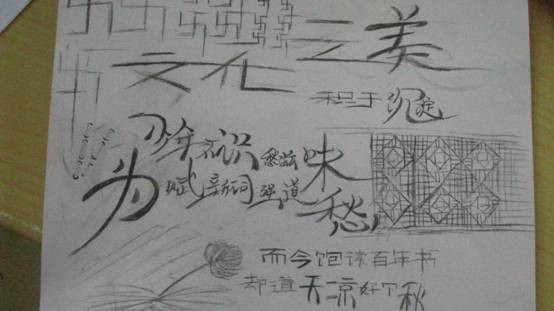 文化之美
积于沉淀
少年不识愁滋味
为赋新词强道愁
而今饱读百年书
却道天凉好个秋